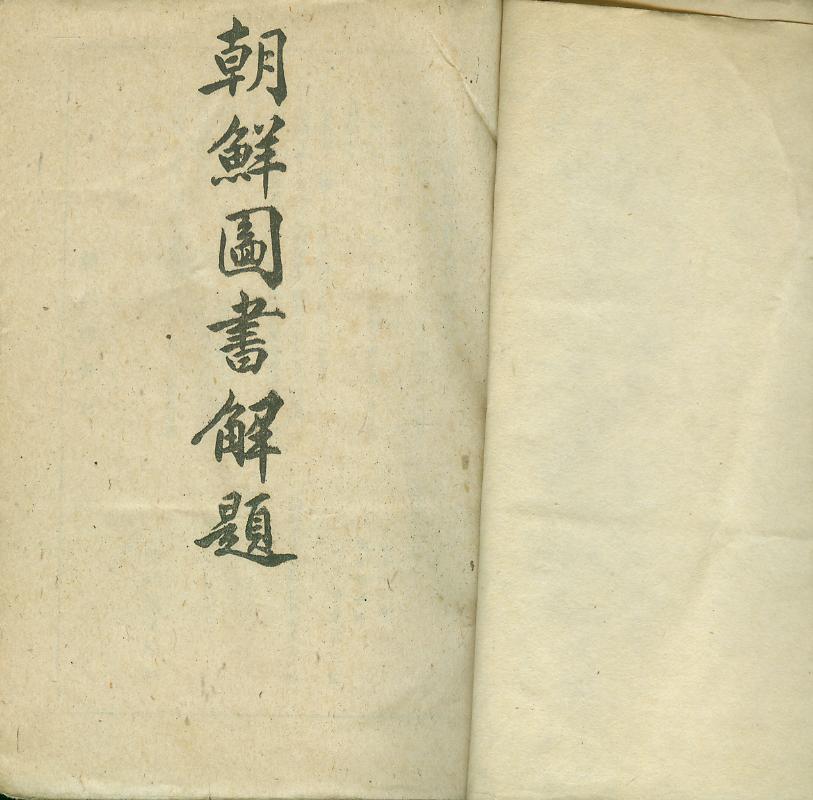 朝鮮圖書解題